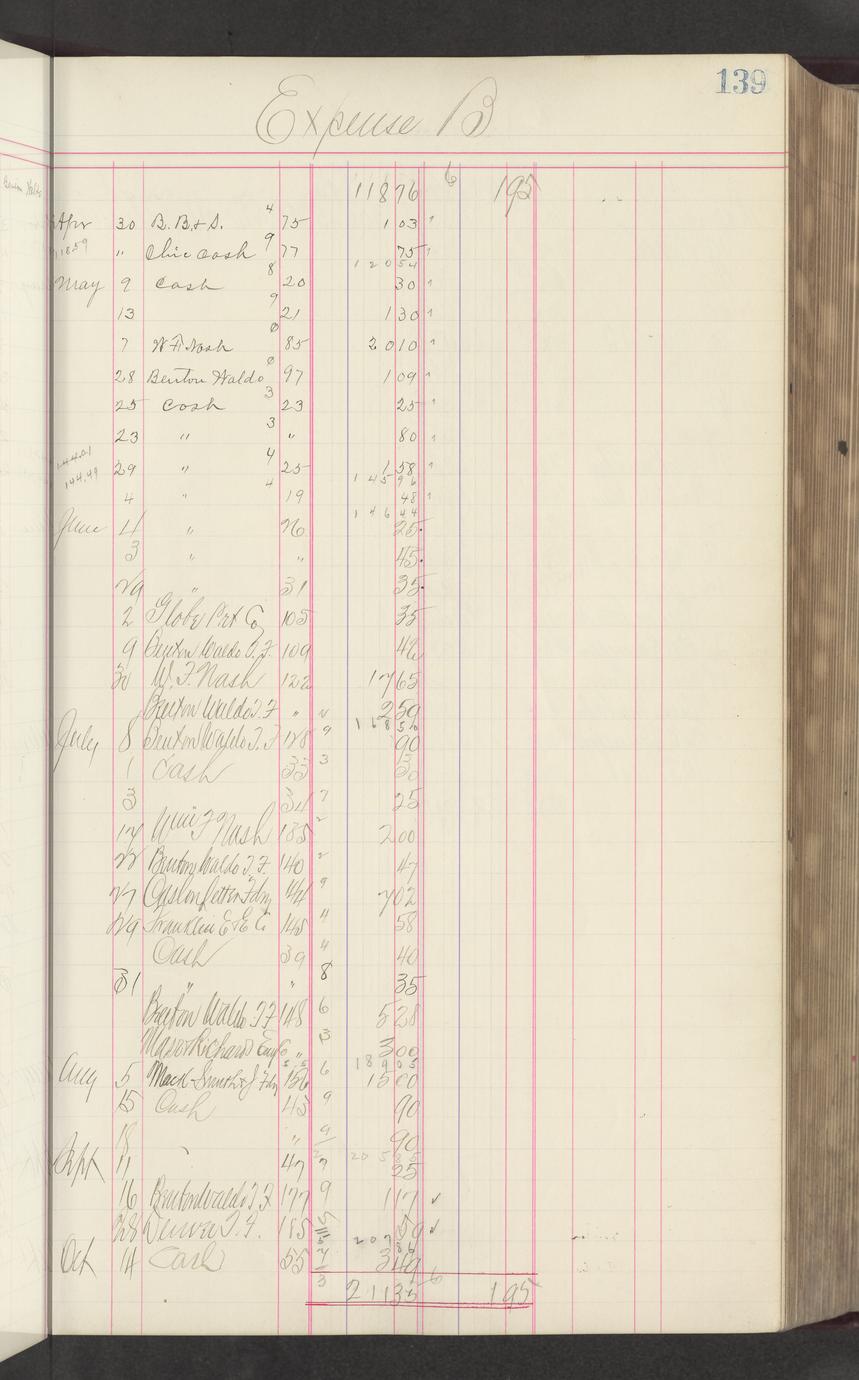 139
Expense B
11876 6 195
Apr 30 B. B. & S. 4 75 1 03
11859 " Chic Cash 9 77 75
1 20 54
May 9 Cash 8 20 30
13 9 21 1 30
7 W F Nash 0 85 20 10
28 Benton Waldo 0 97 1 09
25 Cash 3 23 25
23 " 3 " 80
144.01
144.49 29 " 4 25 1 58
1 45 96
4 " 4 19 48
1 46 44
June 4 " 26 25
3 " " 45
29 " 31 35
2 Globe Prt Co 105 35
9 Benton Waldo T. F. 109 42
30 W. F. Nash 122 17 65
Benton Waldo T. F. " 2 59
1 68 56
July 8 Benton Waldo T. F. 128 9 90
1 Cash 33 3 30
3 34 7 25
17 Wm F Nash 135 2 2 00
22 Benton Waldo T. F. 140 2 47
27 144 9 7 02
29 Franklin E & E Co 145 4 58
Cash 39 4 40
31 " " 8 35
Benton Waldo T F 148 6 5 28
" 3 3 00
1 89 05
Aug 5 156 6 15 00
15 Cash 43 9 90
18 " 9 90
20 5 85
Sept 11 47 7 25
16 Benton Waldo T. F. 177 9 1 17 ✓
28 Denver T. F. 185 59 ✓
Oct 14 Cash 55 3 49
3 21135 6 195